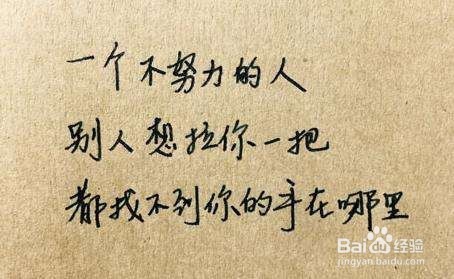 一个不努力的人
别人想拉你一把
都找不到你的手在哪里
Baidu经验
jingyan.baidu.com